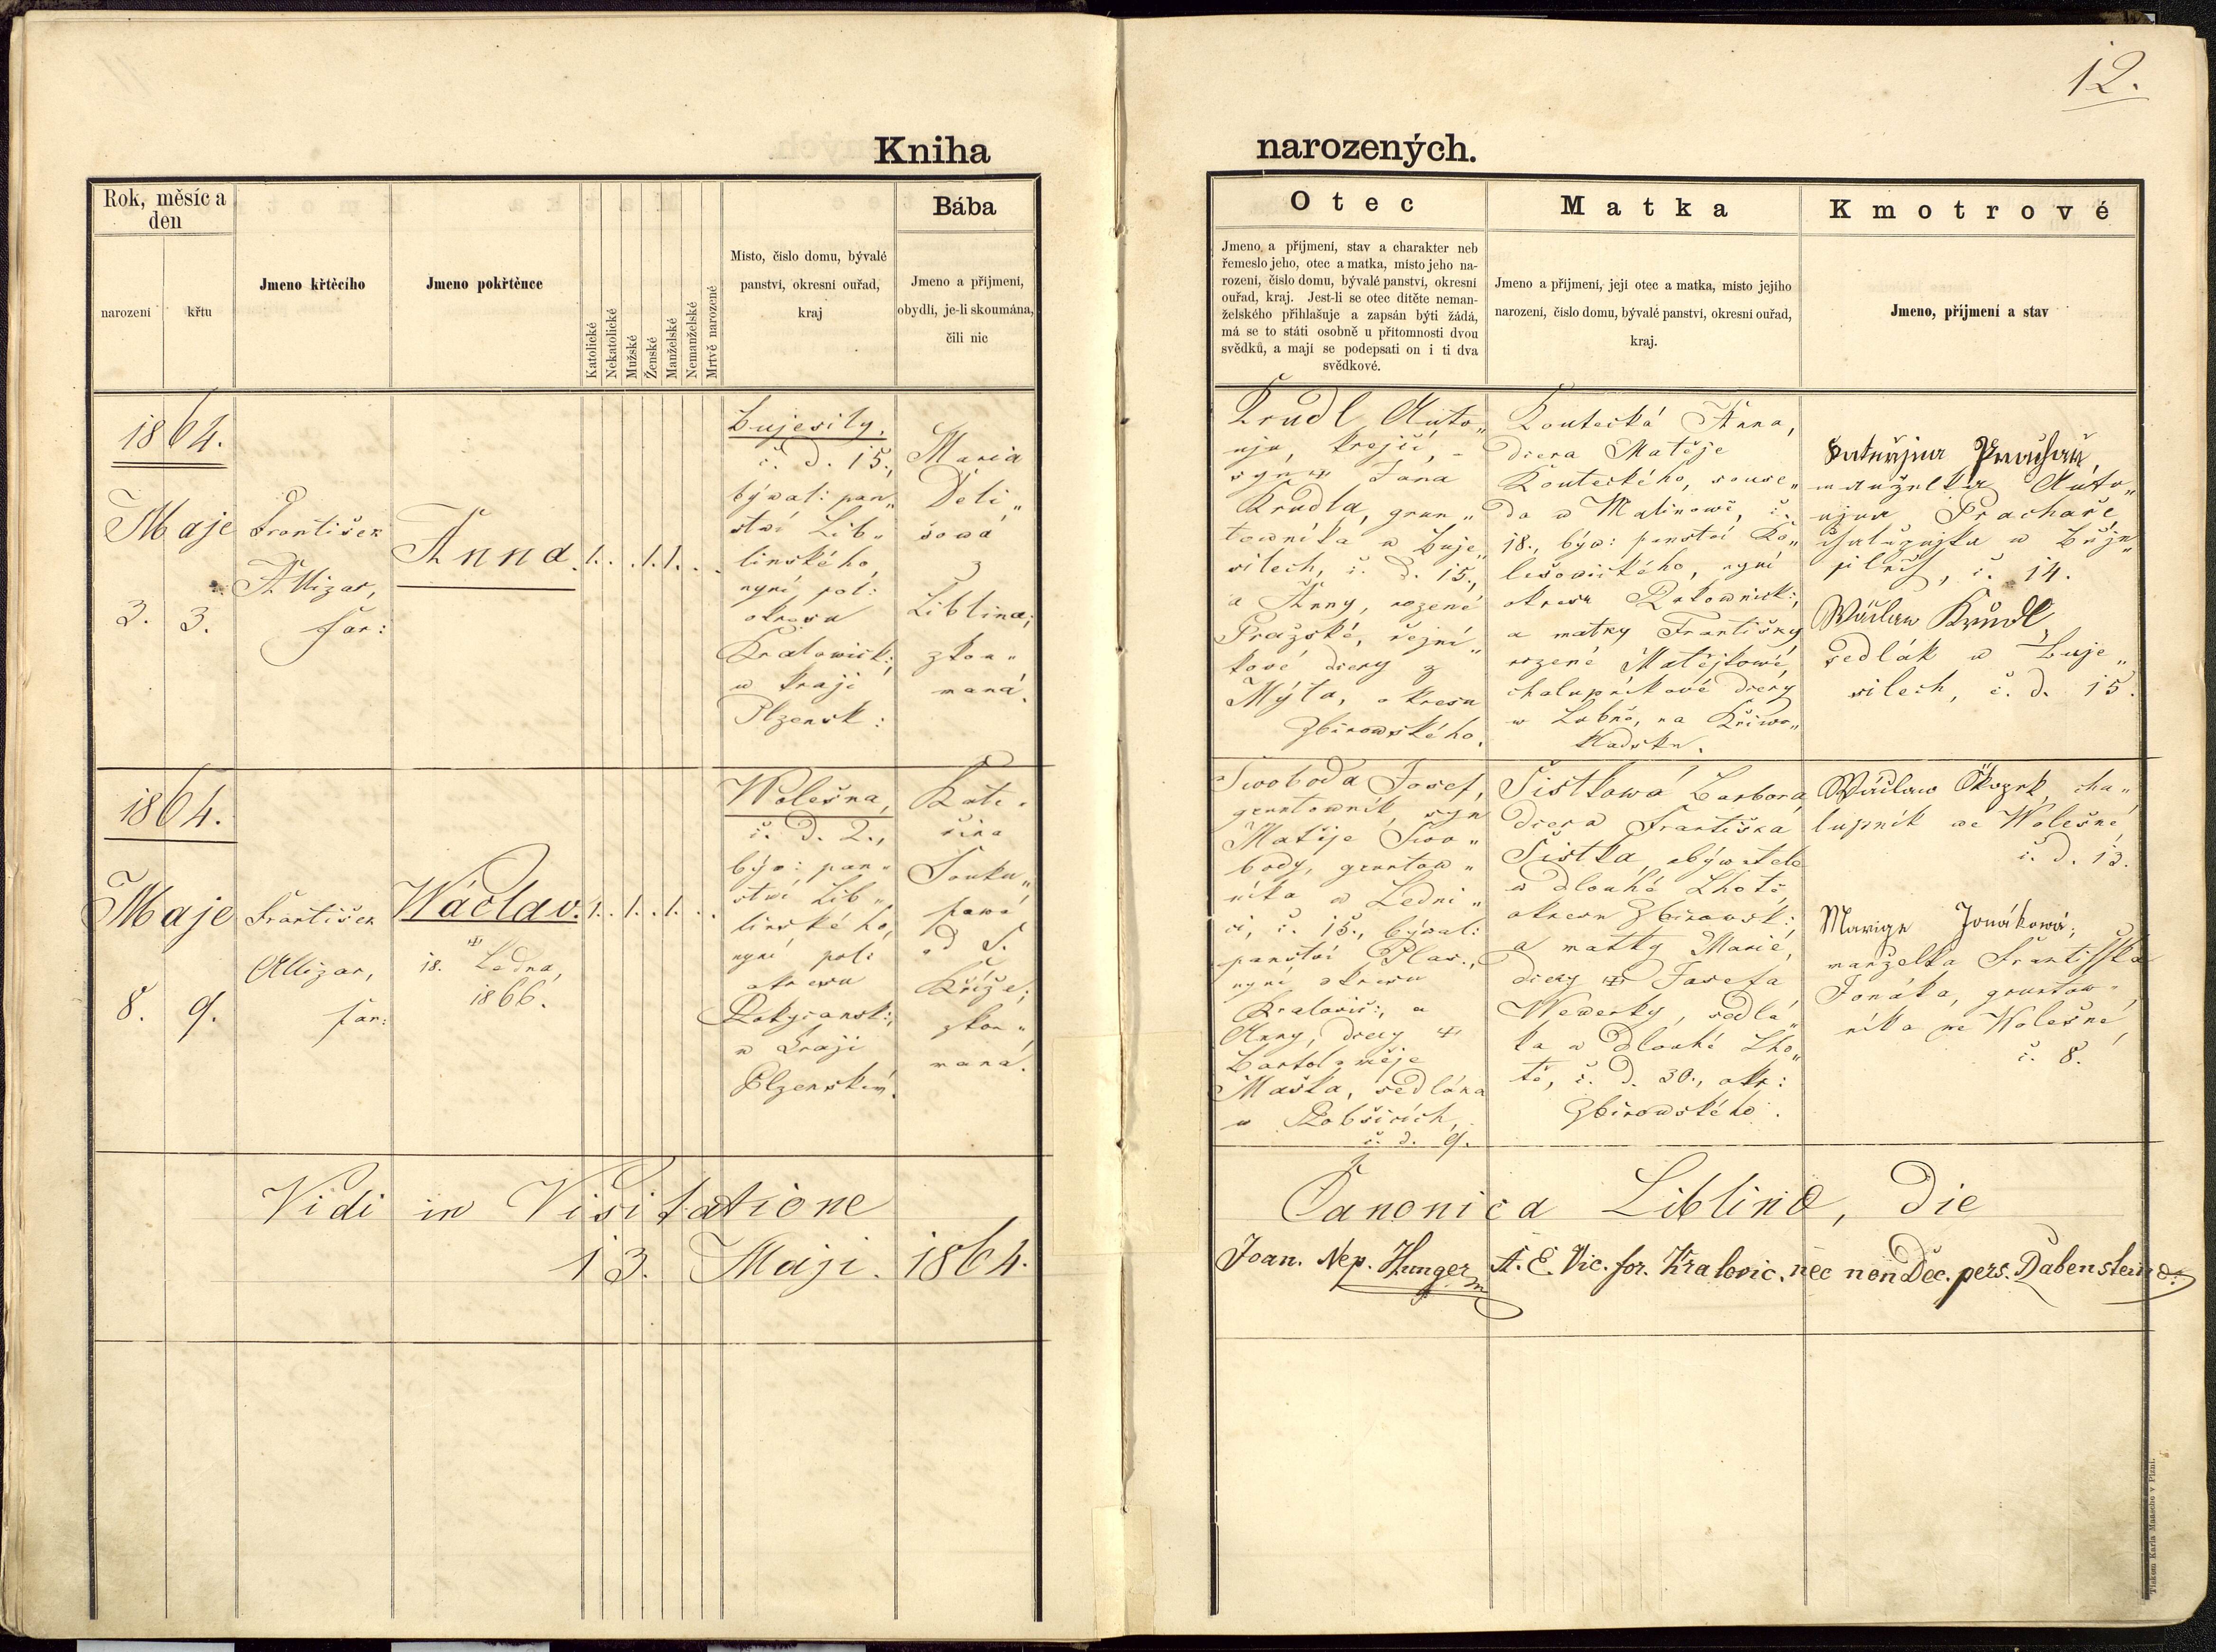 12.
Kniha narozených.
Rok, měsíc a
den
narození
křtu
Jmeno křtěcího
Jmeno pokřtěnce
Katolické
Nekatolické
Mužské
Ženské
Manželské
Nemanželské
Mrtvě narozené
Místo, číslo domu, bývalé
panství, okresní ouřad,
kraj
Bába
Jmeno a příjmení,
obydlí, je-li skoumána,
čili nic
Otec
Jmeno a příjmení, stav a charakter neb
řemeslo jeho, otec a matka, místo jeho na-
rození, číslo domu, bývalé panství, okresní
ouřad, kraj. Jest-li se otec dítěte neman-
želského přihlašuje a zapsán býti žádá,
má se to státi osobně u přítomnosti dvou
svědků, a mají se podepsati on i ti dva
svědkové.
Matka
Jmeno a příjmení, její otec a matka, místo jejího
narození, číslo domu, bývalé panství, okresní ouřad,
kraj.
Kmotrové
Jmeno, příjmení a stav
1864.
Maje
3. 3.
František
Allizar,
far:
Anna.
1. . . 1. 1. . .
Bujesily.
č. d. 15.,
býwal: pan„
ství Lib„
linského,
nyní pol:
okresu
Kralowick:,
w kraji
Plzensk:
Maria
Deli„
šowá
z
Liblína;
zkou„
maná.
Krudl Anto„
nín, krejčí, -
syn Jana
Krudla, grun„
towníka w Buje„
silech, č. d. 15.,
a Anny, rozené
Pražské, řezní„
kové dcery z
Mýta, okresu
Zbirowského.
Koutecká Anna,
dcera Matěje
Kouteckého, souse„
da w Malinowě, č.
18., býw: panství Ko„
lešowického, nyní
okresu Rakownick:,
a matky Františky,
rozené Matějkowé,
chalupníkové dcery
w Lubně, na Křiwo„
kladsku.
Kateřina Prachař,
manželka Anto„
nína Prachaře,
chalupníka w Buje„
silech, č. 14.
Wáclaw Krudl,
sedlák w Buje„
silech, č. d. 15.
1864.
Maje
8. 9.
František
Allizar,
far:
Wáclav.
18. Ledna,
1866.
1. . 1. . 1. . .
Wolešna,
č. d. 2.,
býw: pan„
ství Lib„
linského,
nyní pol:
okresu
Rokycansk:,
w kraji
Plzenském.
Kate„
řina
Souku„
powá
od S.
Kříže;
zkou„
maná.
Swoboda Josef,
gruntowník, syn
Matěje Swo„
body, gruntow„
níka w Ledni„
ci, č. 15., býwal:
panství Plas.,
nyní okresu
Kralovic:, a
Anny, dcery
Bartoloměje
Maška, sedláka
w Robčicích,
č. d. 9.
Šistkowá Barbora,
dcera Františka
Šistka, obýwatele
w dlouhé Lhotě,
okresu Zbirowsk:,
a matky Marie,
dcery Josefa
Wewerky, sedlá„
ka w Dlouhé Lho„
tě, č. d. 30., okr:
Zbirowského.
Wáclaw, cha„
lupník we Wolešné,
č. d. 13.
Marige Jonákowá,
manželka Františka
Jonáka, gruntow„
níka we Wolešné,
č. 8.
Vidi in Visitatione Canonica Liblinæ, die
13. Maji. 1864.
Joan. Nep. Hunger A. E. Vic. for. Kralovic. nec non Dec. pers. Dabensteinæ.
Tiskem Karla Maascho v Plzni.